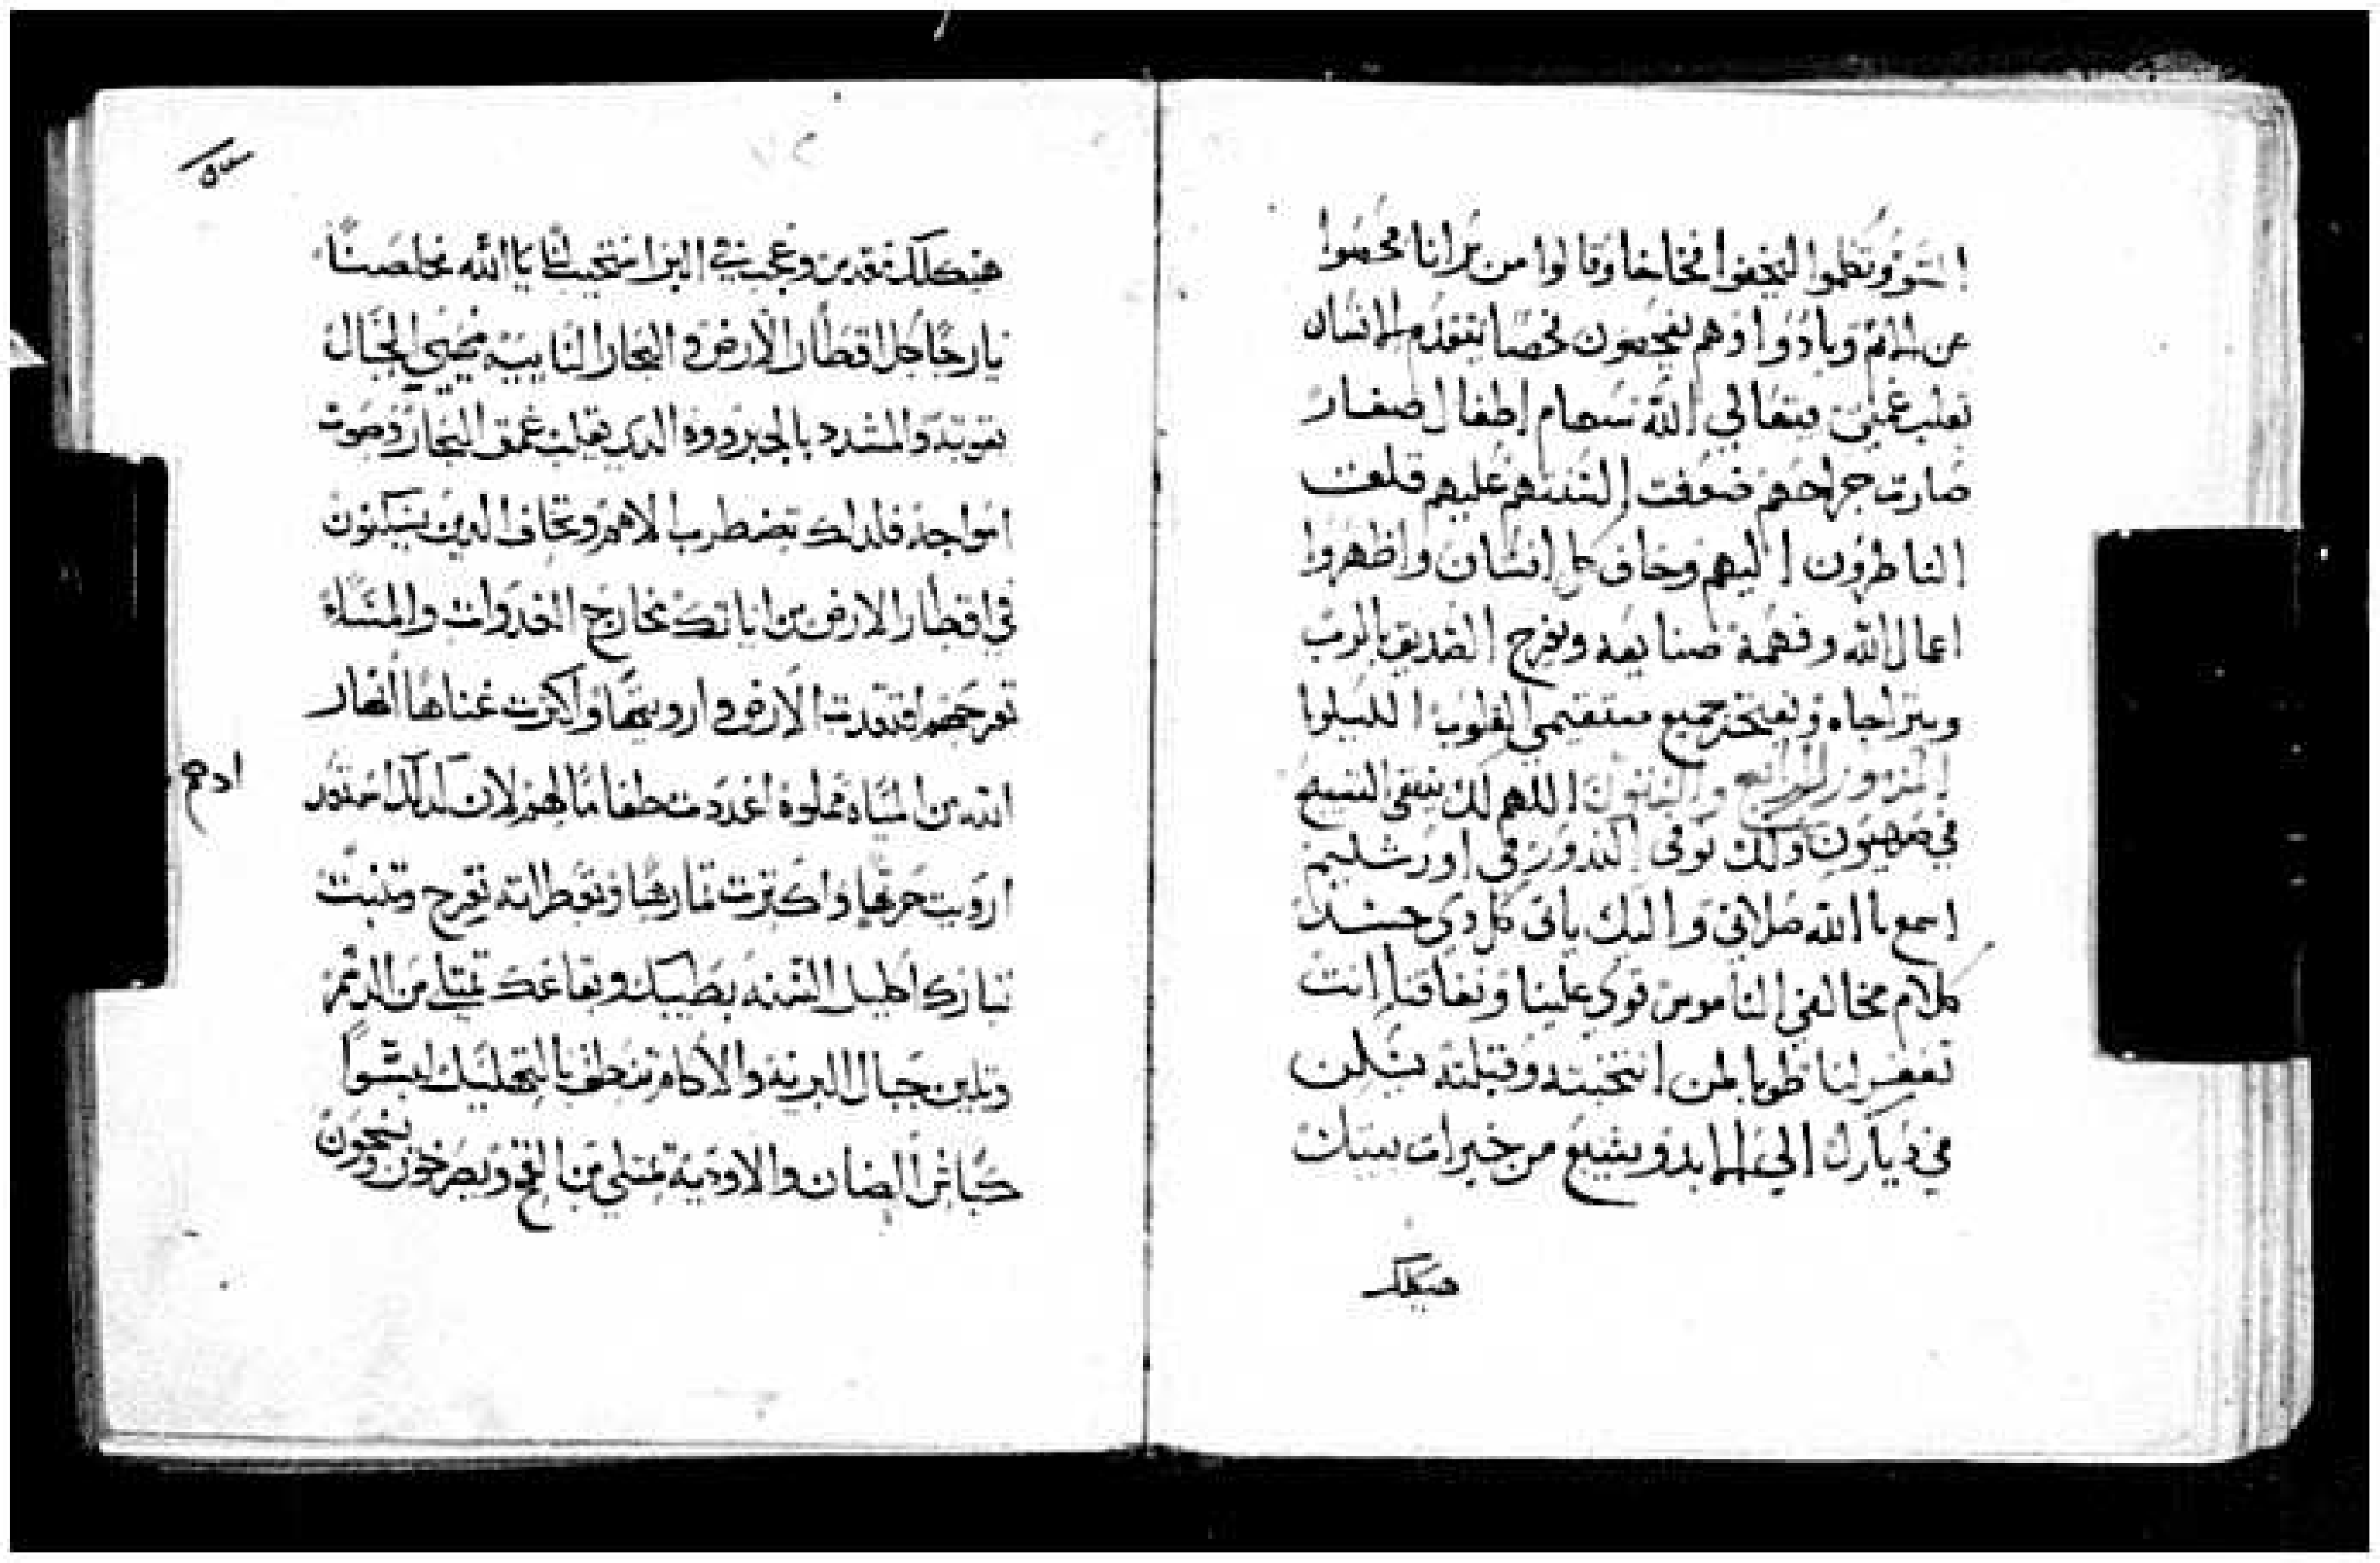 الشرور وتكلموا ليخفوا فخاخا وقالوا من يرانا فحصوا
عن الاثم وبادوا وهم يفحصون فحصا يتقدم الانسان
بقلب عميق ويتعالي الله سهام اطفال صغار
صارت جراحهم ضعفت السنتهم عليهم قلقت
الناظرون اليهم وخاف كل انسان واظهروا
اعمال الله وفهمة صنايعه ويفرح الصديق بالرب
ويترجاه ويفتخر جميع مستقيمي القلوب الليلويا
المزمور الرابع والستون اللهم لك ينبغي التسبيح
في صهيون ولك توفى النذور في اورشليم
اسمع يا الله صلاتي واليك ياتي كل ذي جسد
كلام مخالفي الناموس قوي علينا ونفاقنا انت
تغفر لنا طوبا لمن انتخبته وقبلته يسكن
في ديارك الي الابد ويشبع من خيرات بيتك
هيكلك
هيكلك مقدس وعجيب في البر استجيب لنا يا الله مخلصنا
يا رجا كل اقطار الارض و البحار النايية مهيي الجبال
بقوته والمشدد بالجبروه الذي يقلب عمق البحار وصوت
امواجه فلذلك تضطرب الامم وتخاف الذين يسكنون
في اقطار الارض من اياتك مخارج الغدوات والمساء
تفرحهم افتقدت الارض و ارويتها واكثرت غناها انهار
الله من المياة مملوة اعددت طعاما لهم لان كذلك استعد
ارويت حرثها واكثرت ثمارها وبقطراته تفرح وتنبت
تبارك اكليل السنه بطيبك وبقاعك تمتلي من الدسم
وتلين جبال البرية والاكام تتنطق بالتهليل لبسوا
كباش الضان والاودية تمتلي من القمح ويصرخون ويسبحون